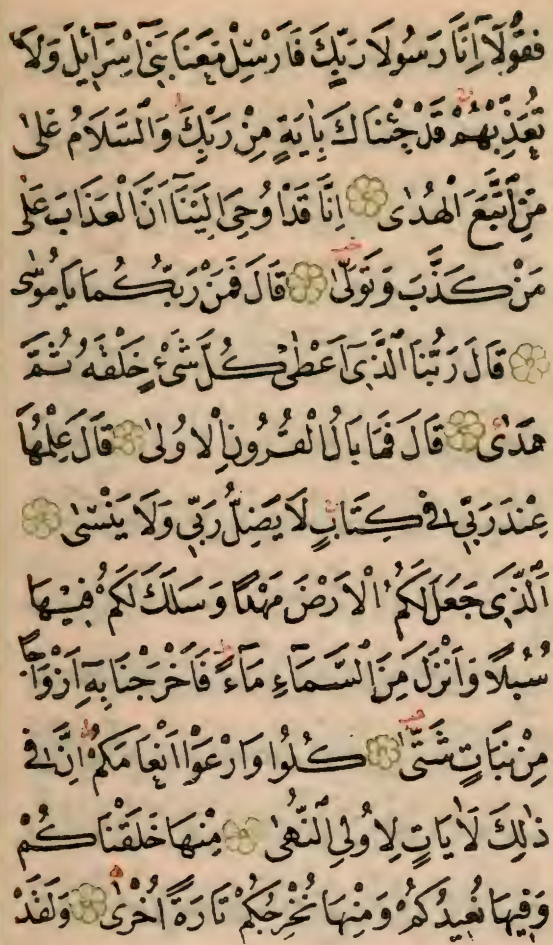 فَقُولَآ اِنَّا رَسُولَا رَبِّكَ فَاَرْسِلْ مَعَنَا بَنِٓى اِسْرَٓائٖلَ وَلَا
تُعَذِّبْهُمْ قَدْ جِئْنَاكَ بِاٰيَةٍ مِنْ رَبِّكَ وَالسَّلَامُ عَلٰى
مَنِ اتَّبَعَ الْهُدٰى اِنَّا قَدْ اُوحِىَ اِلَيْنَٓا اَنَّ الْعَذَابَ عَلٰى
مَنْ كَذَّبَ وَتَوَلّٰى قَالَ فَمَنْ رَبُّكُمَا يَا مُوسٰى
قَالَ رَبُّنَا الَّذٖٓى اَعْطٰى كُلَّ شَىْءٍ خَلْقَهُ ثُمَّ
هَدٰى قَالَ فَمَا بَالُ الْقُرُونِ الْاُولٰى قَالَ عِلْمُهَا
عِنْدَ رَبّٖى فٖى كِتَابٍ لَا يَضِلُّ رَبّٖى وَلَا يَنْسٰى
اَلَّذٖى جَعَلَ لَكُمُ الْاَرْضَ مَهْدًا وَسَلَكَ لَكُمْ فٖيهَا
سُبُلًا وَاَنْزَلَ مِنَ السَّمَٓاءِ مَٓاءً فَاَخْرَجْنَا بِهٖٓ اَزْوَاجًا
مِنْ نَبَاتٍ شَتّٰى كُلُوا وَارْعَوْا اَنْعَامَكُمْ اِنَّ فٖى
ذٰلِكَ لَاٰيَاتٍ لِاُولِى النُّهٰى مِنْهَا خَلَقْنَاكُمْ
وَفٖيهَا نُعٖيدُكُمْ وَمِنْهَا نُخْرِجُكُمْ تَارَةً اُخْرٰى وَلَقَدْ